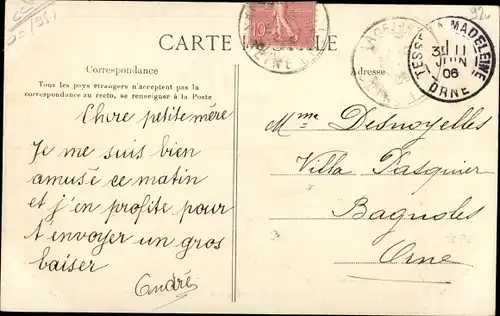 92c
CARTE POSTALE
Correspondance
Tous les pays étrangers n'acceptent pas la
correspondance au recto, se renseigner à la Poste
Adresse
TESSÉ LA MADELEINE
3E 11
JUIN
06
ORNE
10c
Chere petite mère
Je me suis bien
amusé ce matin
et j'en profite pour
t envoyer un gros
baiser
André
Mme Desnoyelles
Villa Pasquier
Bagnoles
Orne